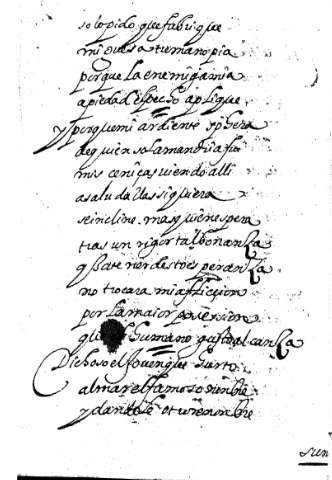 solo pido que fabrique
mi ouesa tu mano pia
porque la enemiga mia
a piedad el pecho aplique
y porque mi ardiente
de quien salamandria fui
mis ceniças viendo alli
a saludallas siquiera
se incline. mas quien espera
tras un rigor tal bonanza
q esperanza
no trocara mi aflicion
por la maior posesion
que humano gusto alcanza
Dichoso el Jouen que surto
al mar el famoso nombre
y dandole otro renombre
sun